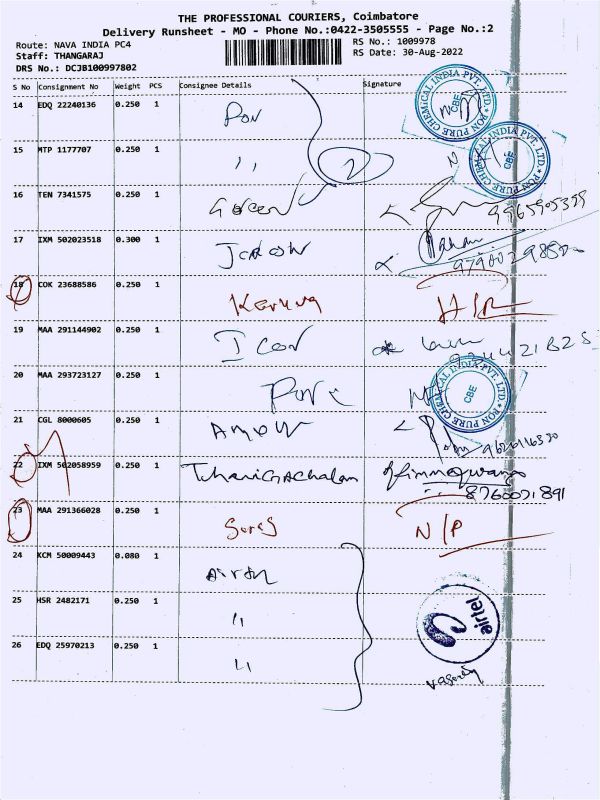 THE PROFESSIONAL COURIERS, Coimbatore
Delivery Runsheet - MO - Phone No.:0422-3505555 - Page No.:2
Route: NAVA INDIA PC4
Staff: THANGARAJ
DRS No.: DCJB100997802
RS No.: 1009978
RS Date: 30-Aug-2022
S No Consignment No Weight PCS Consignee Details Signature
14 EDQ 22240136 0.250 1
RON PURE CHEMICAL INDIA PVT. LTD. CBE
15 MTP 1177707 0.250 1 〃 2
CHEMICAL INDIA PVT. LTD. RON PURE CBE
16 TEN 7341575 0.250 1
17 IXM 502023518 0.300 1
18 COK 23688586 0.250 1
19 MAA 291144902 0.250 1 Icon
20 MAA 293723127 0.250 1
RON PURE CHEMICAL INDIA PVT. LTD. CBE
21 CGL 8000605 0.250 1
22 IXM 502058959 0.250 1 Thanigachalam
8760071891
23 MAA 291366028 0.250 1 N/P
24 KCM 50009443 0.080 1
25 HSR 2482171 0.250 1 〃
airtel
26 EDQ 25970213 0.250 1 〃